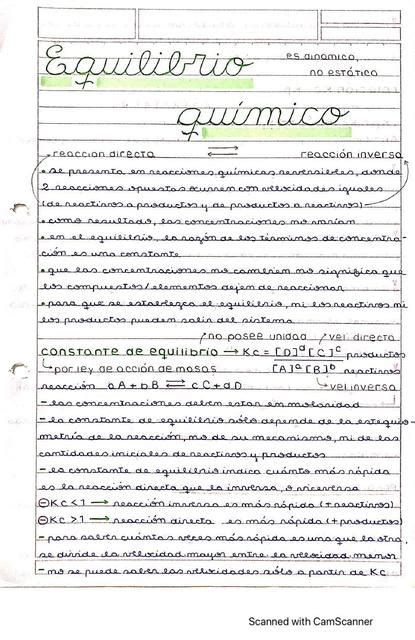 Equilibrio
es dinámico,
no estático
químico
reacción directa ⇌ reacción inversa
• se presenta en reacciones químicas reversibles, donde
2 reacciones opuestas ocurren con velocidades iguales
(de reactivos a productos y de productos a reactivos)
• como resultado, las concentraciones no varían
• en el equilibrio, la razón de los términos de concentra-
ción es una constante
• que las concentraciones no cambien no significa que
los compuestos/elementos dejen de reaccionar
• para que se establezca el equilibrio, ni los reactivos ni
los productos pueden salir del sistema
no posee unidad vel directa
constante de equilibrio → Kc = [D]^d [C]^c productos
por ley de acción de masas [A]^a [B]^b reactivos
reacción aA + bB ⇌ cC + dD vel inversa
- las concentraciones deben estar en molaridad
- la constante de equilibrio sólo depende de la estequio-
metría de la reacción, no de su mecanismo, ni de las
cantidades iniciales de reactivos y productos
- la constante de equilibrio indica cuánto más rápida
es la reacción directa que la inversa, o viceversa
Kc < 1 → reacción inversa es más rápida (+ reactivos)
Kc > 1 → reacción directa es más rápida (+ productos)
- para saber cuántas veces más rápida es una que la otra,
se divide la velocidad mayor entre la velocidad menor
- no se puede saber las velocidades sólo a partir de Kc
Scanned with CamScanner